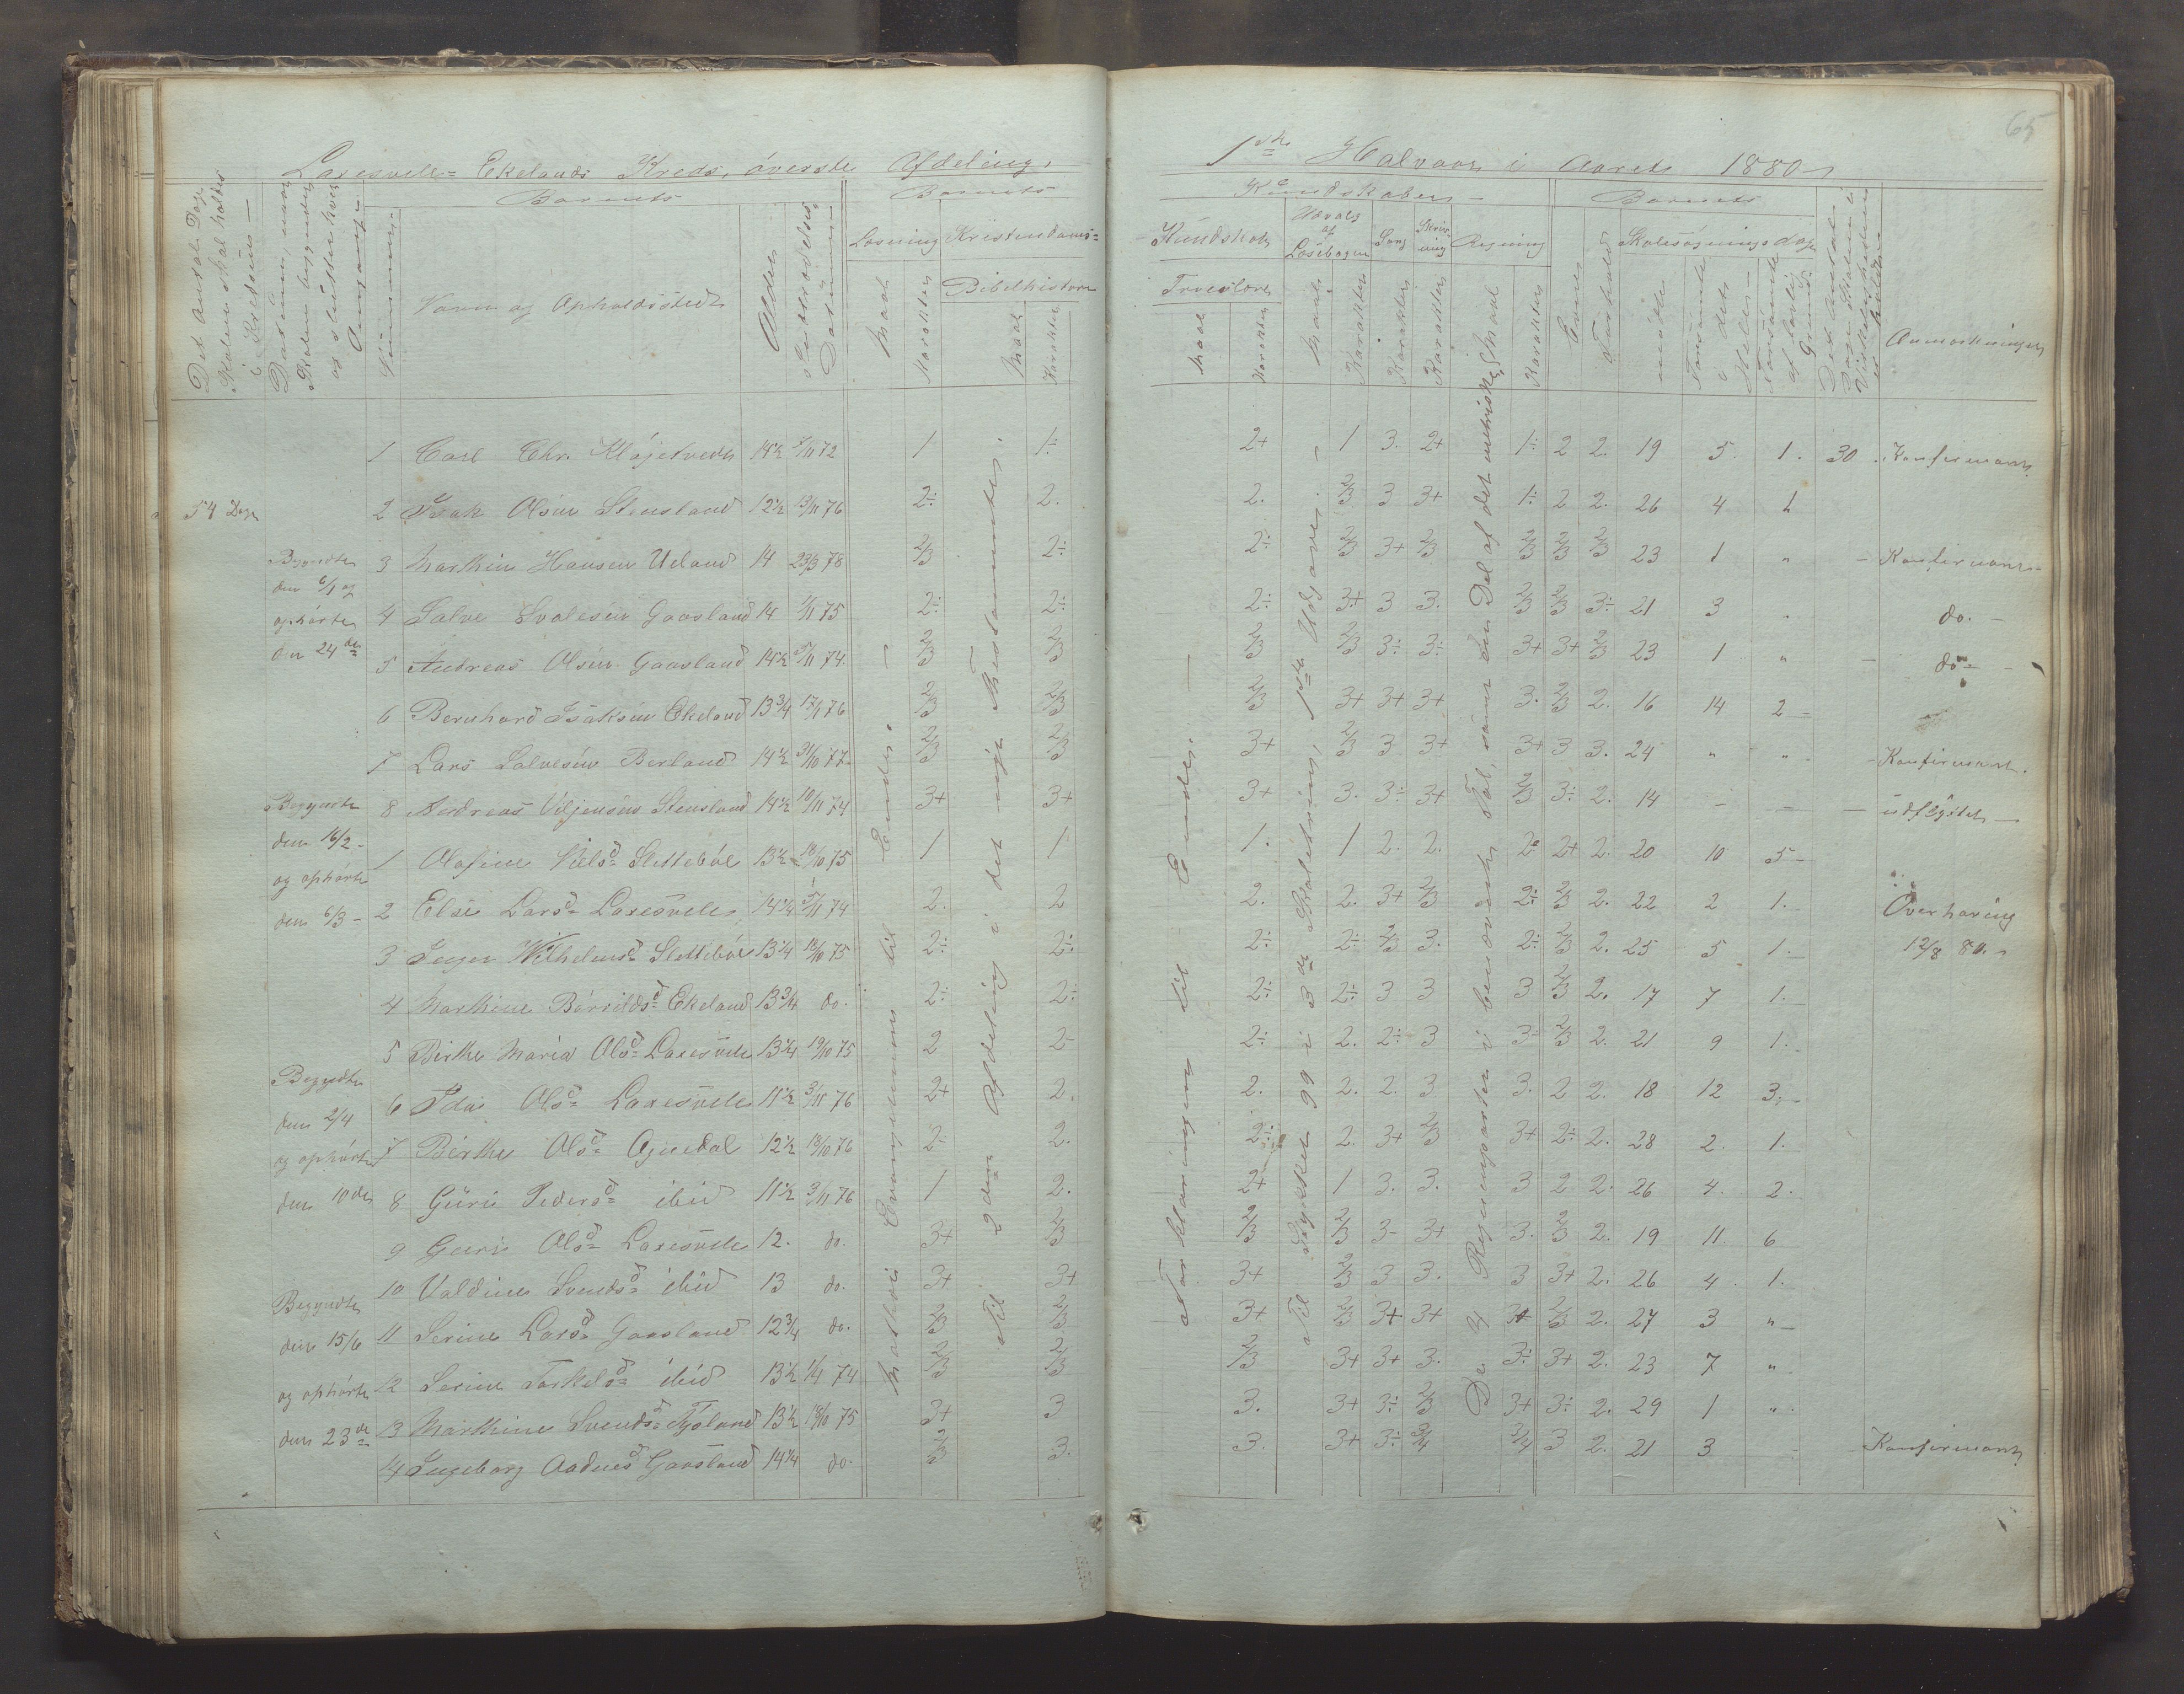 65
Laxesvele= Ekelands Kreds, överste Afdeling.
1ste Halvaar i Aaret 1880
Det Antal Dage Skolen skal holdes i Kredsen
Datum, naar Skolen begyndes og sluttes hver Omgang
Nummer
Barnets
Navn og Opholdssted
Alder
Indtrædelses Datum
Barnets
Læsning
Maal
Karakter
Kristendoms=
Bibelhistorie
Maal
Karakter
Kundskaber
Kundskab
Troeslære
Maal
Karakter
Udvalg af Læsebogen
Maal
Karakter
Sang
Karakter
Skrivning
Karakter
Regning
Maal
Karakter
Barnets
Evner
Forhold
Skolesøgningsdage
mødte
forsømte i det Hele
forsømte af lovlig Grund
Det Antal Dage Skolen i Virkeligheden er holdt
Anmærkninger
54 Dage
Begyndte den 6/1 og ophørte den 24de
Begyndte den 16/2 og ophørte den 6/3
Begyndte den 2/4 og ophørte den 10de
Begyndte den 15/6 og ophørte den 23de
Mathæi Evangeliums til Ende.
Til 2den Afdeling i det nye Testamente.
Forklaringen til Ende.
Til Stykket 99 i 3de Skoletrin, 1ste Udgave.
De 4 Regningsarter i benævnte Tal, samt en Del af det metriske
1 Carl Chr. Kløjetvedt 14½ 7/11 72 1 1÷ 2+ 1 3. 2+ 1÷ 2 2. 19 5. 1. 30. Konfirmant
2 Isak Olsen Stensland 12½ 13/11 76 2÷ 2. 2. 2/3 3 3+ 1÷ 2 2. 26 4 1
3 Marthin Hansen Ueland 14 23/3 78 2/3 2÷ 2÷ 2/3 3+ 2/3 2/3 2/3 2/3 23 1 " Konfirmant
4 Salve Svalesen Gaasland 14 1/11 75 2÷ 2÷ 2÷ 3+ 3 3. 2/3 2/3 3÷ 21 3 " do.
5 Andreas Olsen Gaasland 14½ 5/11 74 2/3 2/3 2/3 2/3 3÷ 3÷ 3+ 3+ 2/3 23 1 " do
6 Bernhard Isaksen Ekeland 13¾ 17/1 76 2/3 2/3 2/3 3+ 3+ 3+ 3. 2/3 2. 16 14 2
7 Lars Salvesen Berland 14½ 31/10 77 2/3 2/3 3+ 2/3 3 3+ 3+ 3 3. 24 " " Konfirmant.
8 Andreas Viljensen Stensland 14½ 10/11 74 3+ 3+ 3+ 3. 3÷ 3+ 2/3 3÷ 2. 14 – – udflyttet
1 Olefine Nielsd Slettebøe 13½ 18/10 75 1 1 1. 1 2. 2. 2. 2+ 2. 20 10 5
2 Else Larsd Laxesvele 14¼ 5/11 74 2. 2 2. 2. 3+ 2/3 2÷ 2/3 2. 22 2 1. Overhøring
3 Inger Wilhelmsd Slettebøe 13¼ 18/10 75 2÷ 2÷ 2÷ 2÷ 2/3 3. 2÷ 2/3 2. 25 5 1. 12/8 80.
4 Marthine Börrildsd Ekeland 13¾ do. 2÷ 2÷ 2÷ 2÷ 3 3 3 2/3 2. 17 7 1.
5 Birthe Maria Olsd Laxesvele 13¼ 19/10 75 2 2- 2÷ 2. 2÷ 3 3÷ 2/3 2. 21 9 1.
6 Ida Olsd Laxesvele 11½ 3/11 76 2+ 2. 2. 2. 2. 3 3. 2 2. 18 12 3.
7 Birthe Olsd Ognedal 12½ 18/10 76 2- 2. 2÷ 2. 3+ 2/3 3+ 2÷ 2. 28 2. 1.
8 Guri Pedersd ibid 11½ 3/11 76 1 2. 2+ 1 3. 3. 3 2 2. 26 4. 2.
9 Guri Olsd Laxesvele 12. do. 3+ 2/3 2/3 2/3 3- 3+ 3. 2/3 2. 19 11. 6
10 Valdine Svendsd ibid 13 do. 3+ 3+ 3+ 2/3 3 3. 3 3+ 2. 26 4. 1.
11 Serine Larsd Gaasland 12¾ do. 2/3 2/3 3+ 2/3 3+ 3+ 3+ 2/3 2. 27 3 "
12 Serine Torkelsd ibid 13½ 1/4 74 2/3 2/3 2/3 3+ 3+ 3. 3÷ 3+ 2. 23 7 "
13 Marthine Svendsd Tysland 13½ 18/10 75 3+ 3 3. 3+ 3÷ 2/3 3+ 3÷ 2. 29 1 "
14 Ingeborg Aadnesd Gaasland 14¼ do. 2/3 3. 3. 3+ 3÷ 3/4 3/4 3 2. 21 3 Konfirmant